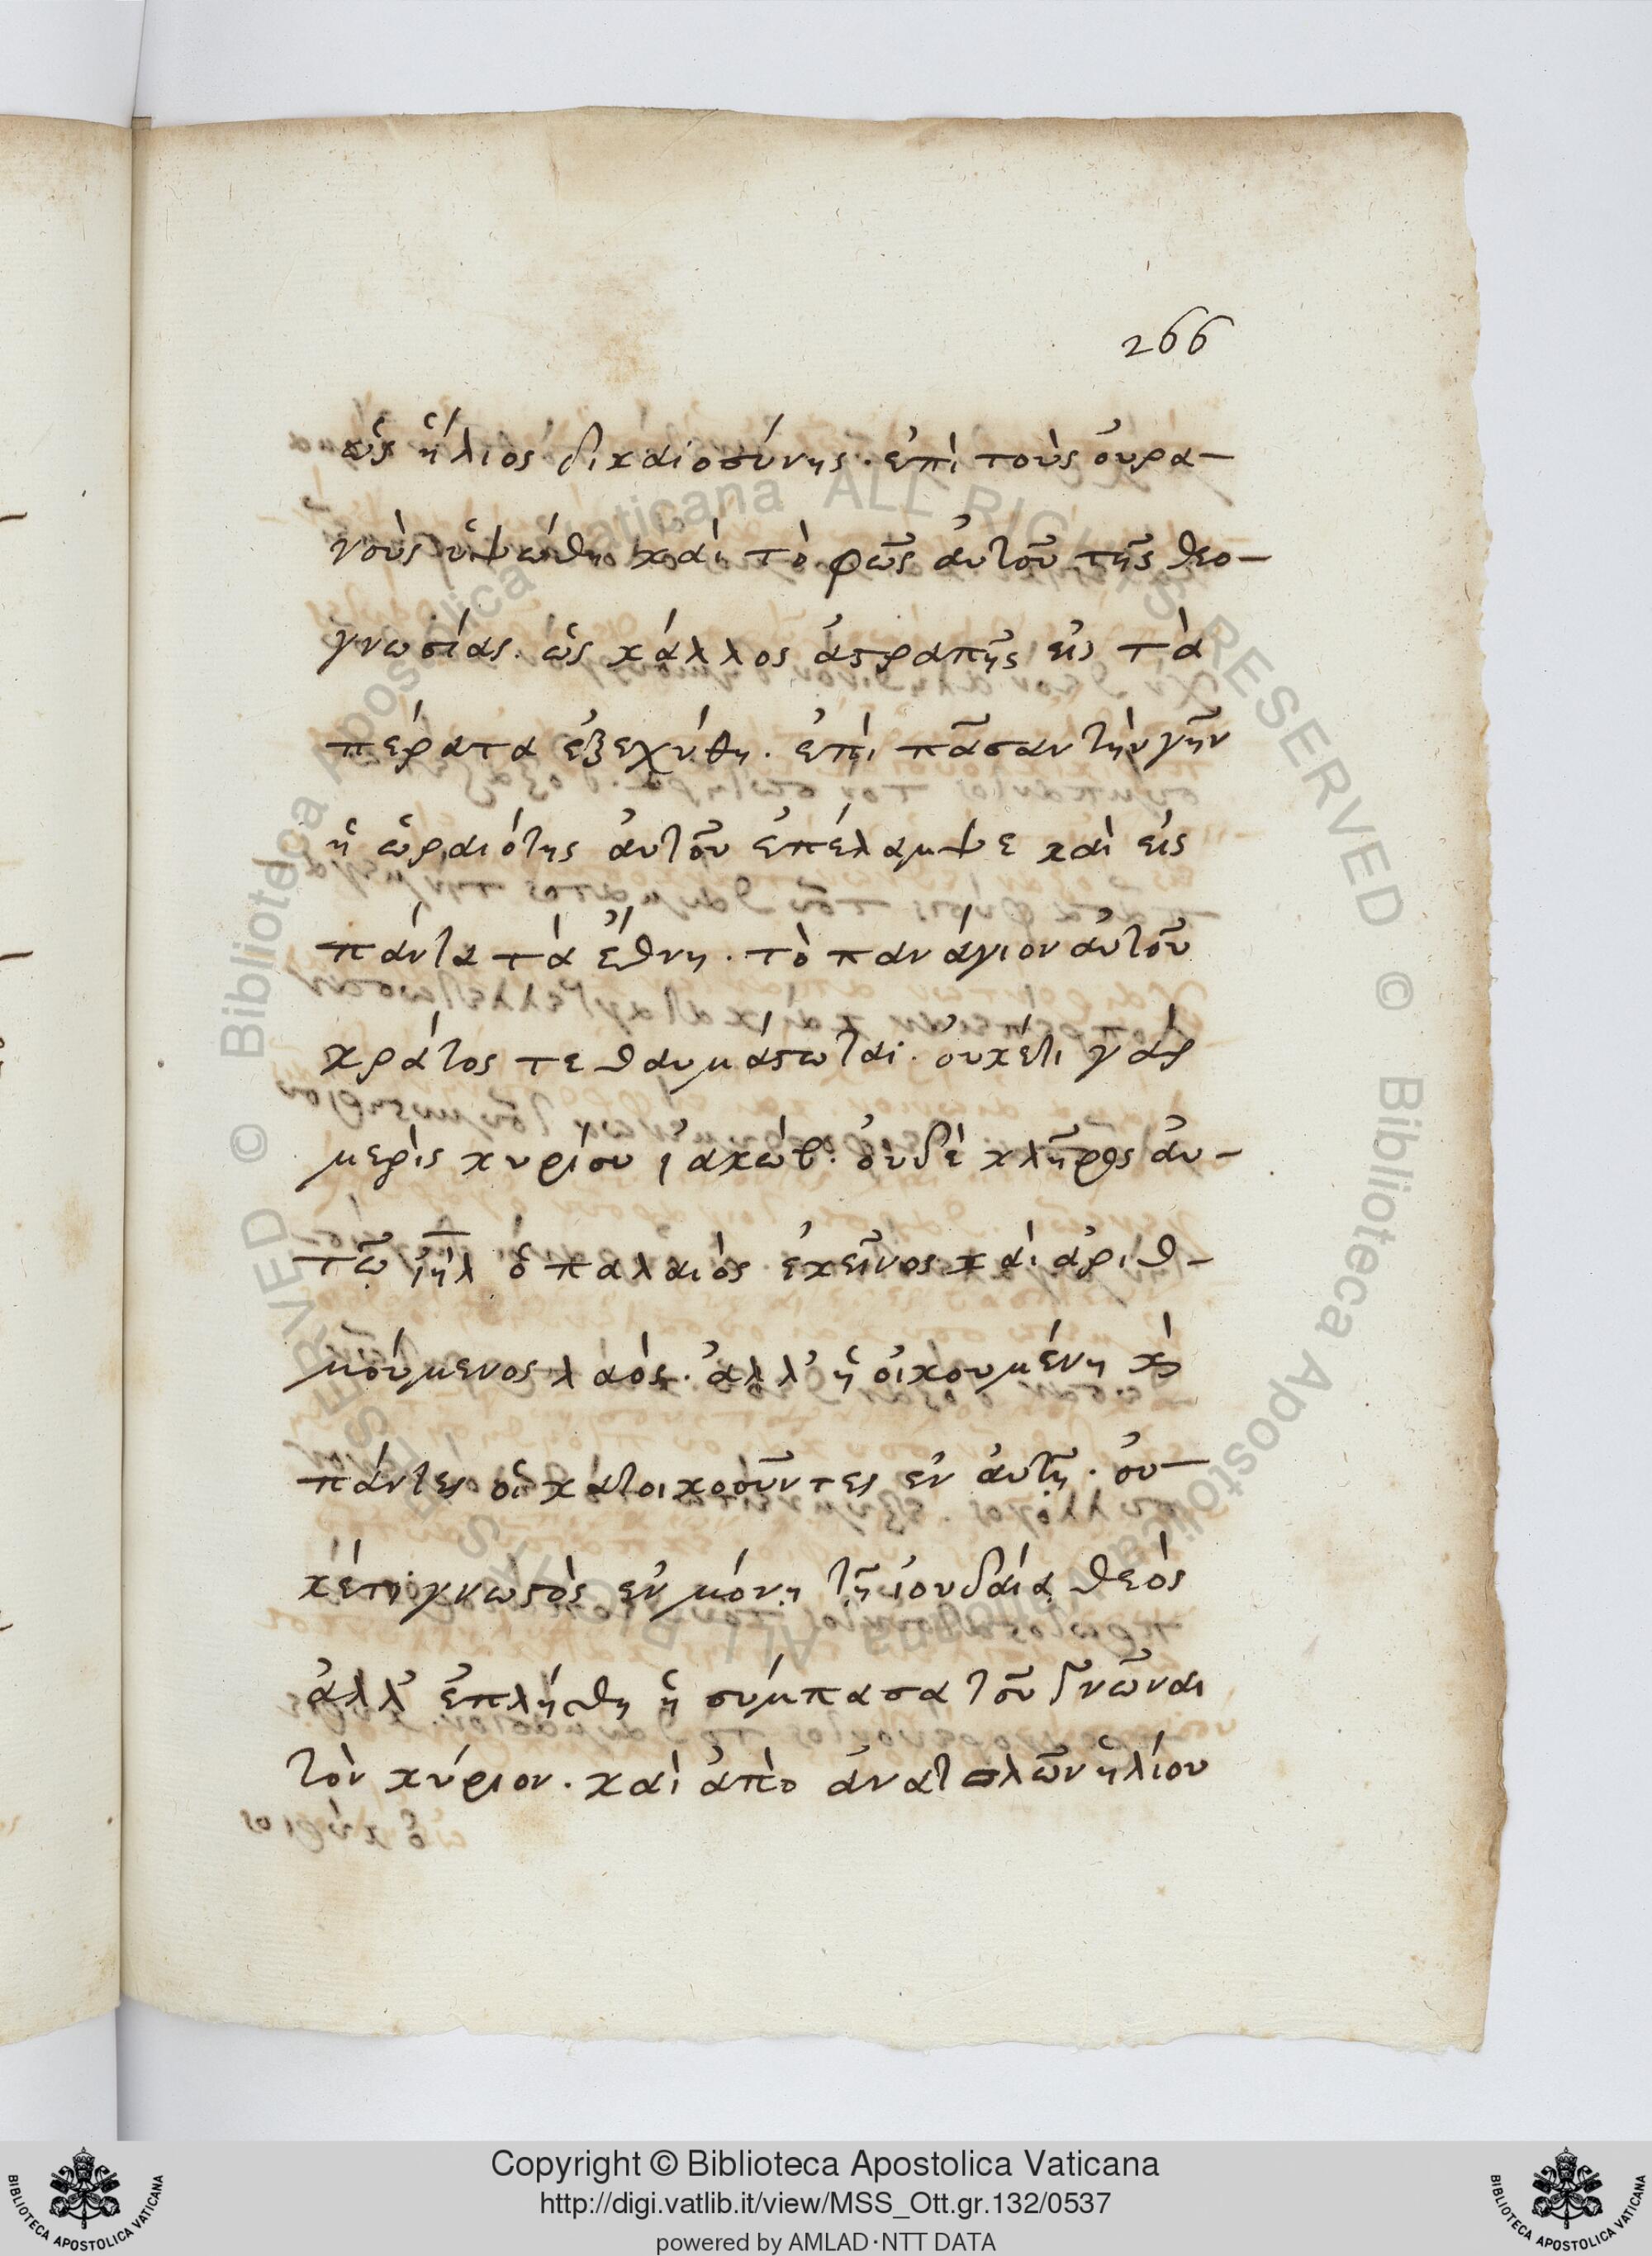 266
ὡς ἥλιος δικαιοσύνης· ἐπὶ τοὺς οὐρα-
νοὺς ὑψώθη καὶ τὸ φῶς αὐτοῦ τῆς θεο-
γνωσίας· ὡς κάλλος ἀστραπῆς εἰς τὰ
πέρατα ἐξεχύθη· ἐπὶ πᾶσαν τὴν γῆν
ἡ ὡραιότης αὐτοῦ ἐπέλαμψε καὶ εἰς
πάντα τὰ ἔθνη· τὸ πανάγιον αὐτοῦ
κράτος τεθαυμάστωται· οὐκέτι γὰρ
μερὶς κυρίου ἰακώβ· οὐδὲ κλῆρος αὐ-
τῷ ἰηλ ὁ παλαιὸς ἐκεῖνος καὶ ἀριθ-
μούμενος λαός· ἀλλ' ἡ οἰκουμένη κὶ
πάντες οἱ κατοικοῦντες ἐν αὐτῇ· οὐ-
κέτι γνωστὸς ἐν μόνῃ τῇ ἰουδαίᾳ θεός
ἀλλ' ἐπλήθη ἡ σύμπασα τοῦ γνῶναι
τὸν κύριον· καὶ ἀπὸ ἀνατολῶν ἡλίου
Copyright © Biblioteca Apostolica Vaticana
http://digi.vatlib.it/view/MSS_Ott.gr.132/0537
powered by AMLAD·NTT DATA
BIBLIOTECA APOSTOLICA VATICANA
BIBLIOTECA APOSTOLICA VATICANA